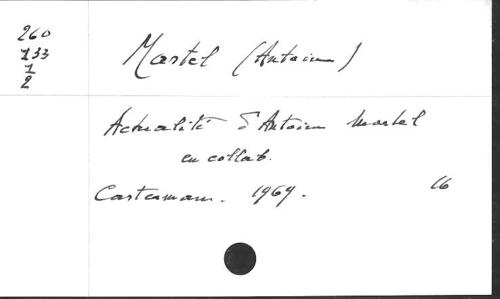 260
133
1
2
Martel (Antoine)
Actualité d'Antoine Martel
en collab.
Casterman. 1969.
16